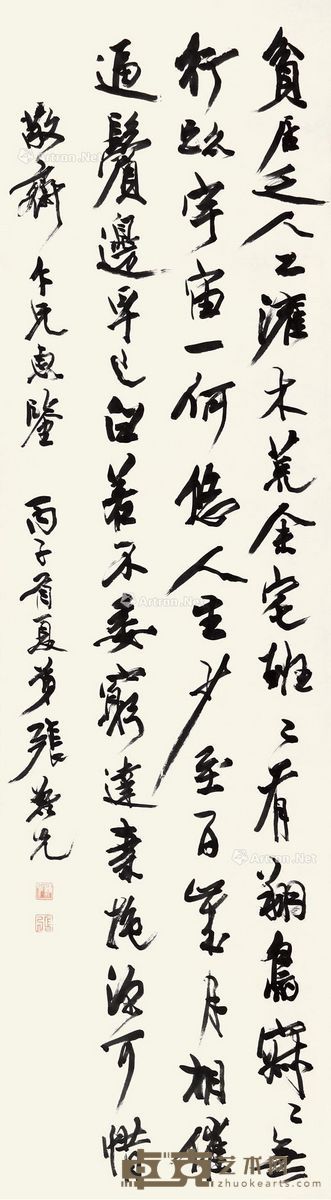 貧居乏人工灌木荒余宅班〻有翔鳥寂〻無
行跡宇宙一何悠人生少至百歲月相催
逼鬢邊早已白若不委窮達素抱深可惜
敬齋仁兄惠鑒 丙子首夏弟張難先
Artron.Net
卓克艺术网
zhuokearts.com